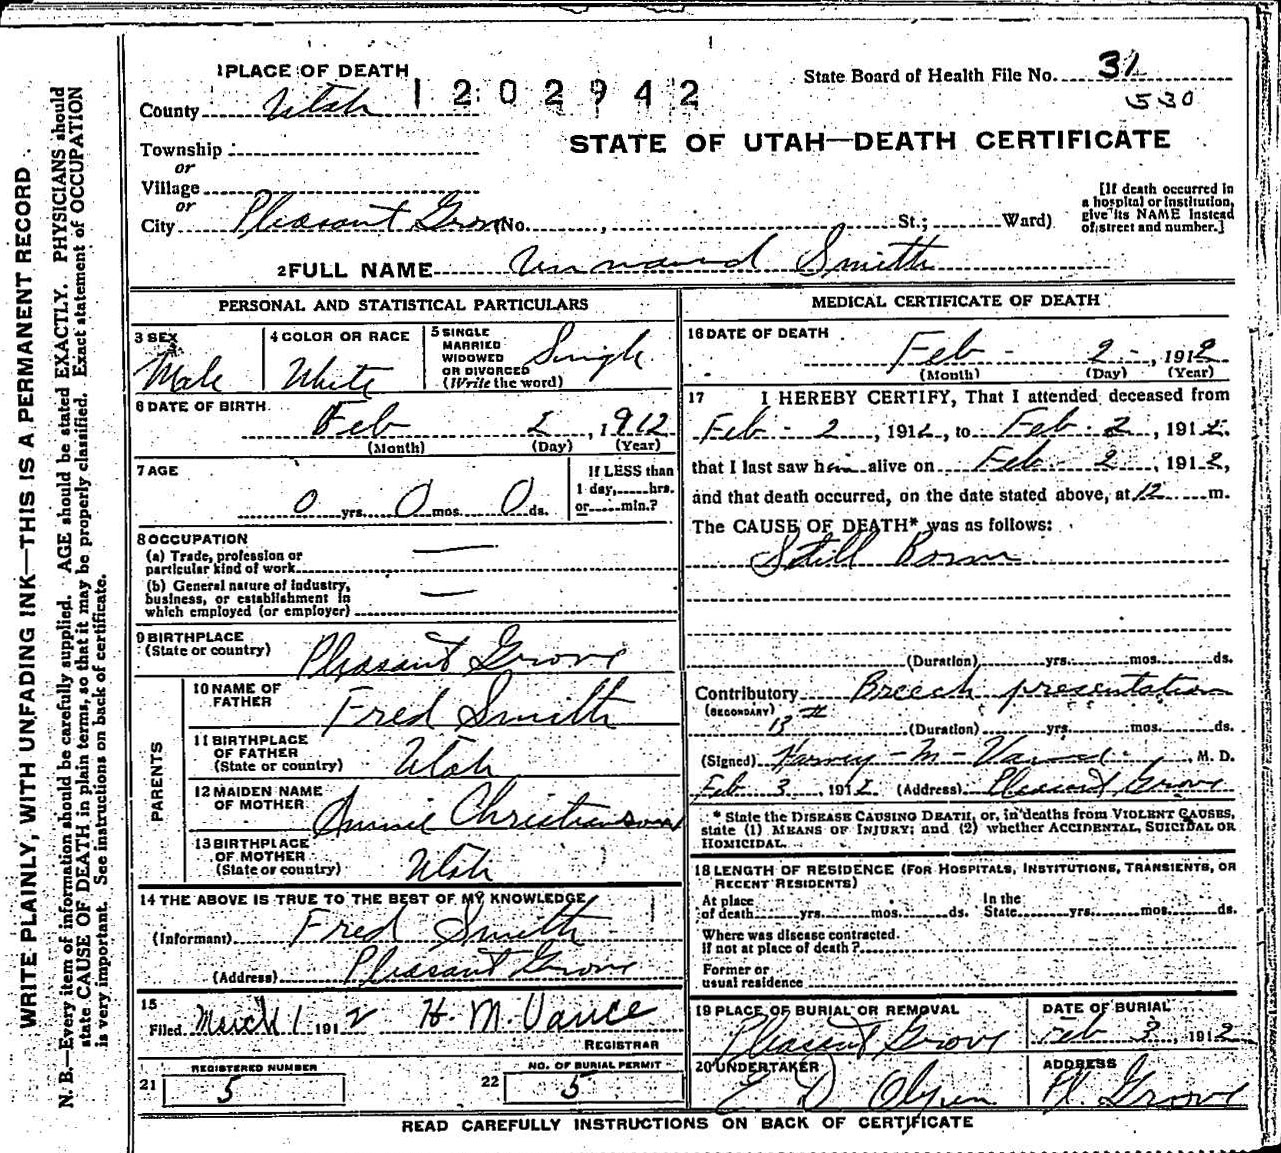 WRITE PLAINLY, WITH UNFADING INK—THIS IS A PERMANENT RECORD
N. B.—Every item of information should be carefully supplied. AGE should be stated EXACTLY. PHYSICIANS should
state CAUSE OF DEATH in plain terms, so that it may be properly classified. Exact statement of OCCUPATION
is very important. See instructions on back of certificate.
1 PLACE OF DEATH
1202942
State Board of Health File No. 31
530
County Utah
STATE OF UTAH—DEATH CERTIFICATE
Township
or
Village
or
City Pleasant Grove No. , St.; Ward)
[If death occurred in
a hospital or institution,
give its NAME instead
of street and number.]
2 FULL NAME Unnamed Smith
PERSONAL AND STATISTICAL PARTICULARS
3 SEX Male
4 COLOR OR RACE White
5 SINGLE
MARRIED
WIDOWED
OR DIVORCED
(Write the word) Single
6 DATE OF BIRTH
Feb 2, 1912
(Month) (Day) (Year)
7 AGE
0 yrs. 0 mos. 0 ds.
If LESS than
1 day, hrs.
or min.?
8 OCCUPATION
(a) Trade, profession or
particular kind of work —
(b) General nature of industry,
business, or establishment in
which employed (or employer) —
9 BIRTHPLACE
(State or country) Pleasant Grove
PARENTS
10 NAME OF
FATHER Fred Smith
11 BIRTHPLACE
OF FATHER
(State or country) Utah
12 MAIDEN NAME
OF MOTHER Annie Christianson
13 BIRTHPLACE
OF MOTHER
(State or country) Utah
14 THE ABOVE IS TRUE TO THE BEST OF MY KNOWLEDGE
(Informant) Fred Smith
(Address) Pleasant Grove
15
Filed March 1 1912 H. M. Vance
REGISTRAR
21 REGISTERED NUMBER 5
22 NO. OF BURIAL PERMIT 5
MEDICAL CERTIFICATE OF DEATH
16 DATE OF DEATH
Feb - 2 -, 1912
(Month) (Day) (Year)
17 I HEREBY CERTIFY, That I attended deceased from
Feb - 2, 1912, to Feb - 2, 1912,
that I last saw him alive on Feb - 2, 1912,
and that death occurred, on the date stated above, at 12 m.
The CAUSE OF DEATH* was as follows:
Still Born
(Duration) yrs. mos. ds.
Contributory Breech presentation
(SECONDARY)
(Duration) yrs. mos. ds.
(Signed) Harvey - M - Vance, M. D.
Feb 3, 1912 (Address) Pleasant Grove
* State the DISEASE CAUSING DEATH, or, in deaths from VIOLENT CAUSES,
state (1) MEANS OF INJURY; and (2) whether ACCIDENTAL, SUICIDAL OR
HOMICIDAL.
18 LENGTH OF RESIDENCE (FOR HOSPITALS, INSTITUTIONS, TRANSIENTS, OR
RECENT RESIDENTS)
At place
of death yrs. mos. ds.
In the
State yrs. mos. ds.
Where was disease contracted.
If not at place of death?
Former or
usual residence
19 PLACE OF BURIAL OR REMOVAL
Pleasant Grove
DATE OF BURIAL
Feb 3, 1912
20 UNDERTAKER
E D Olpin
ADDRESS
Pl. Grove
READ CAREFULLY INSTRUCTIONS ON BACK OF CERTIFICATE